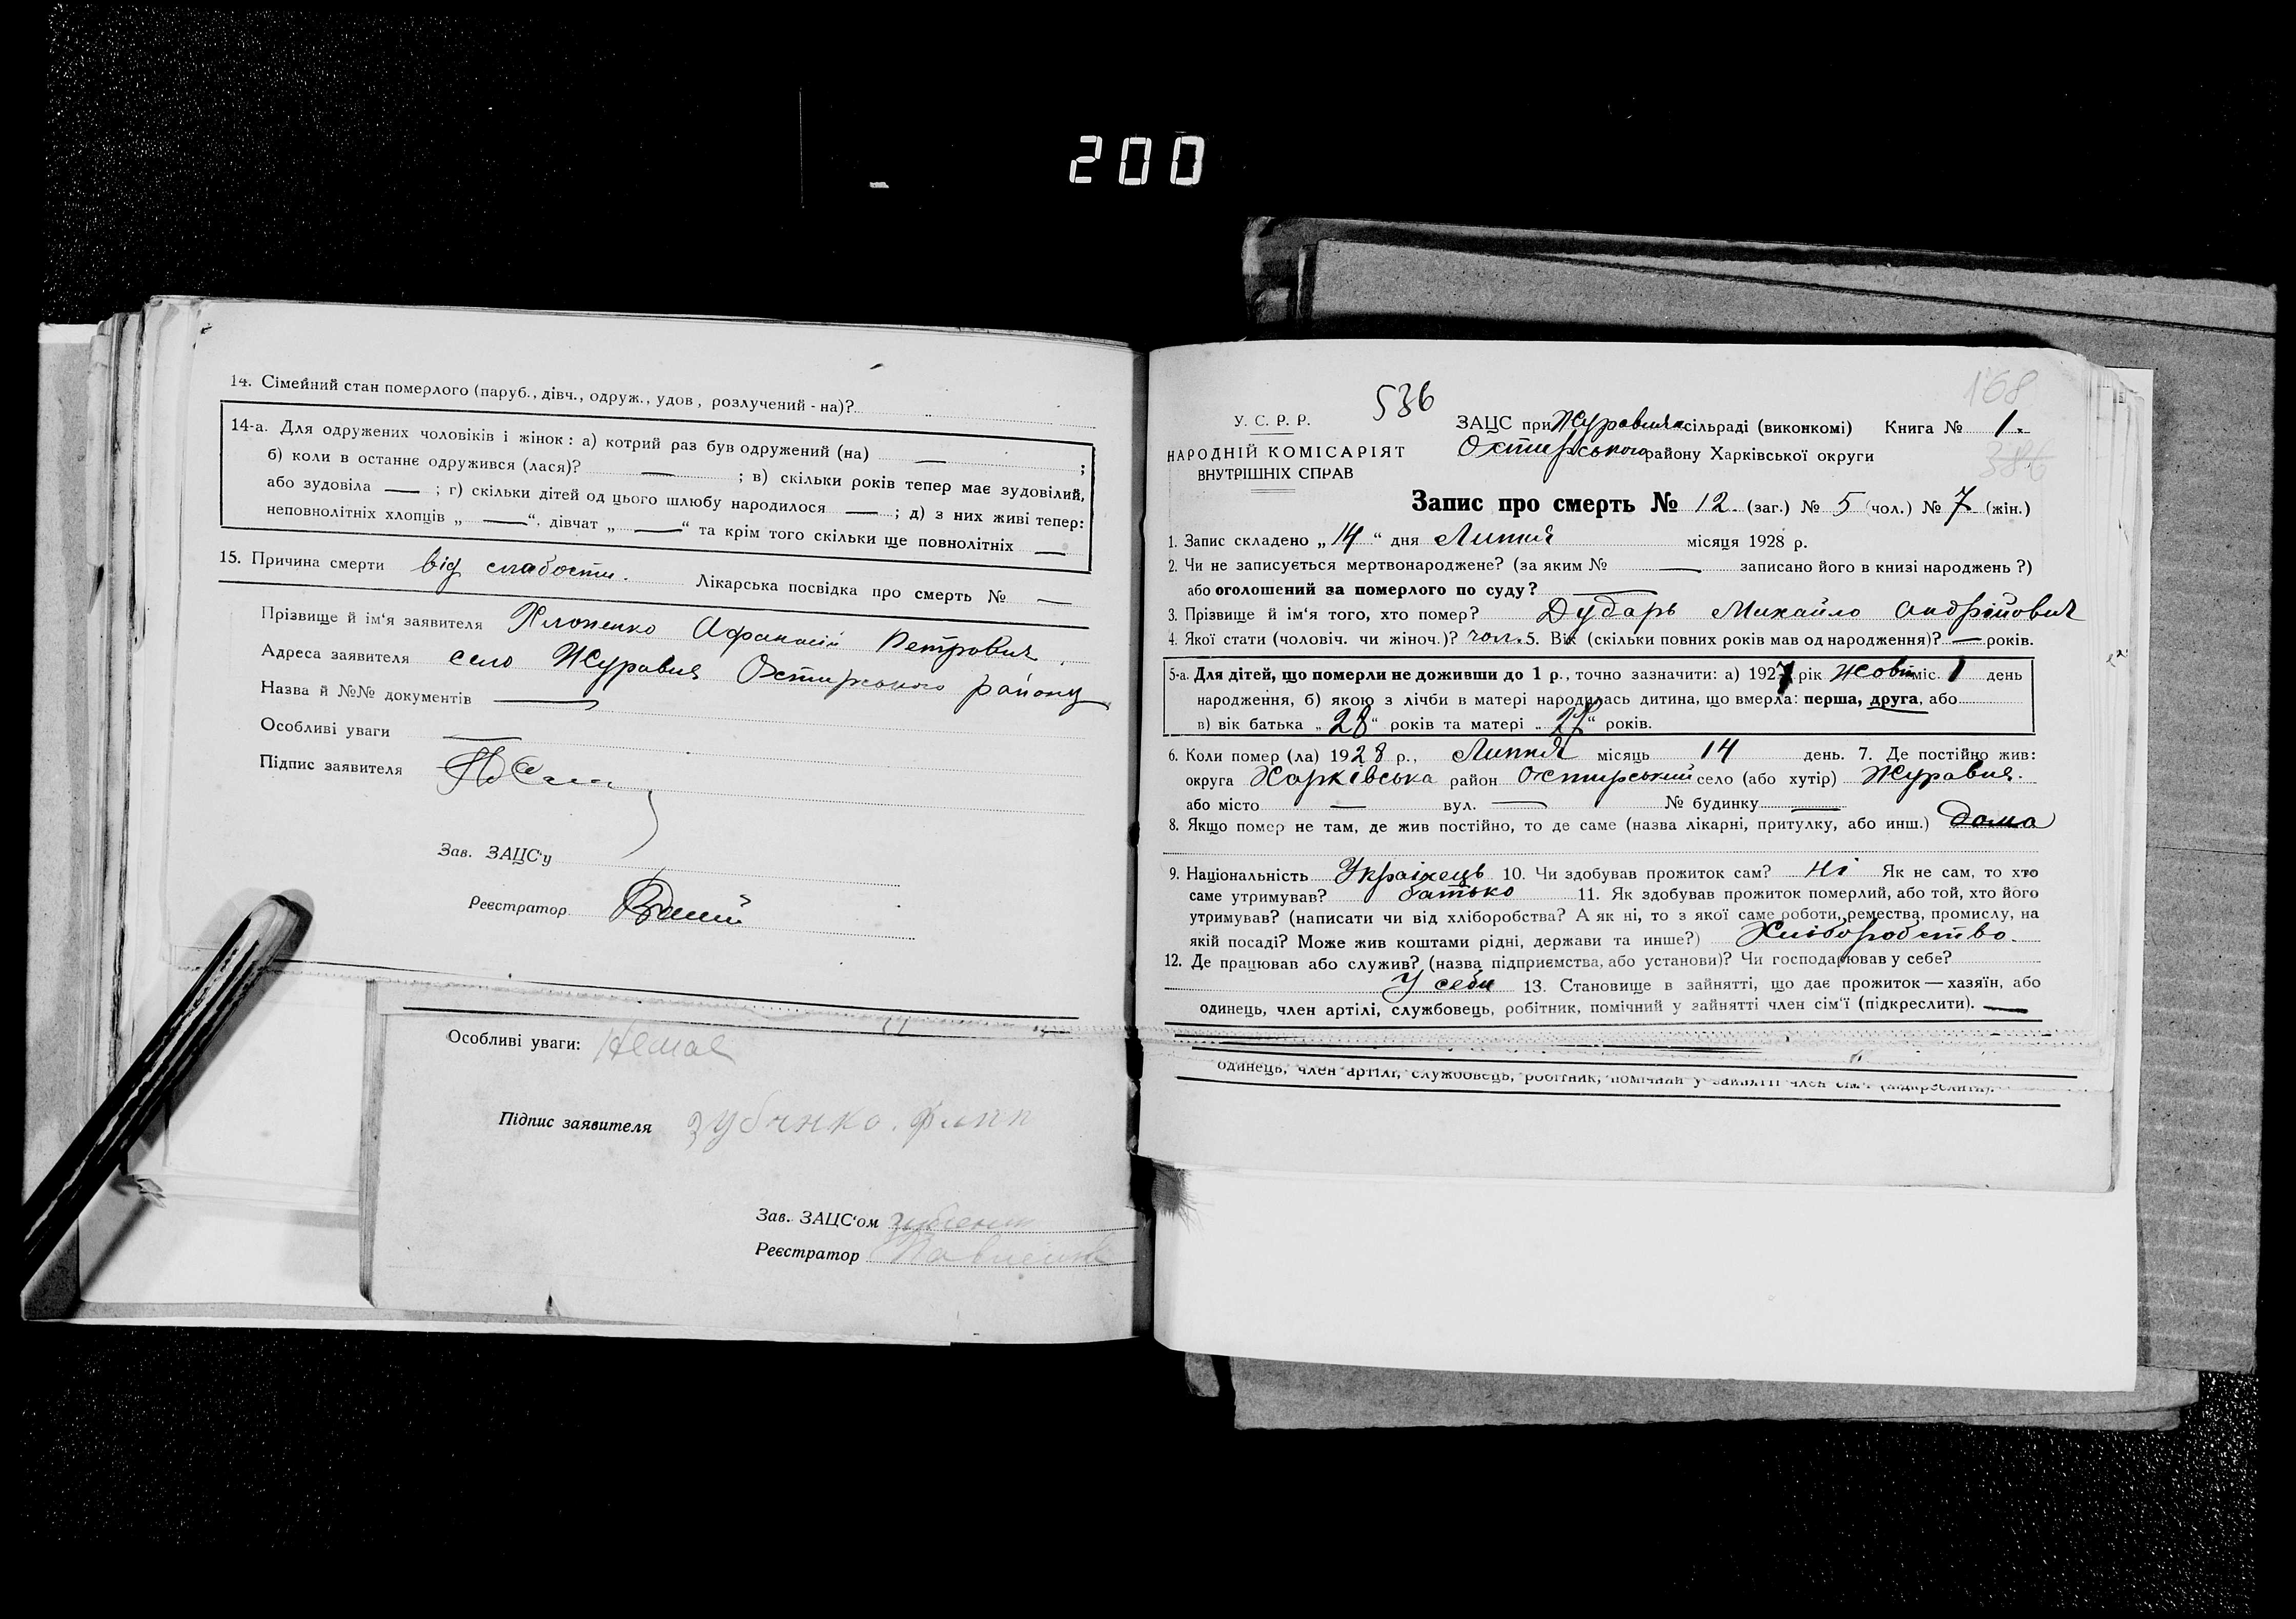 200
14. Сімейний стан померлого (паруб., дівч., одруж., удов, розлучений - на)?
14-а. Для одружених чоловіків і жінок: а) котрий раз був одружений (на) — ;
б) коли в останнє одружився (лася)? — ; в) скільки років тепер має зудовілий,
або зудовіла — ; г) скільки дітей од цього шлюбу народилося — ; д) з них живі тепер:
неповнолітніх хлопців „ — “, дівчат „ — “ та крім того скільки ще повнолітніх —
15. Причина смерти від слабости. Лікарська посвідка про смерть № —
Прізвище й ім'я заявителя Хлопенко Афанасій Петрович
Адреса заявителя село Журавня Охтирського району
Назва й №№ документів —
Особливі уваги —
Підпис заявителя
Зав. ЗАЦС'у
Реєстратор
Особливі уваги: Немає
Підпис заявителя
Зав. ЗАЦС'ом
Реєстратор
168
536
У. С. Р. Р.
НАРОДНІЙ КОМІСАРІЯТ
ВНУТРІШНІХ СПРАВ
ЗАЦС при сільраді (виконкомі) Книга № 1.
Охтирського району Харківської округи
386
Запис про смерть № 12 (заг.) № 5 (чол.) № 7 (жін.)
1. Запис складено „ 14 “ дня Липня місяця 1928 р.
2. Чи не записується мертвонароджене? (за яким № — записано його в книзі народжень ?)
або оголошений за померлого по суду? —
3. Прізвище й ім'я того, хто помер? Дударь Михайло Андрійович
4. Якої стати (чоловіч. чи жіноч.)? чол. 5. Вік (скільки повних років мав од народження)? — років.
5-а. Для дітей, що померли не доживши до 1 р., точно зазначити: а) 1927 рік Жовт міс. 1 день
народження, б) якою з лічби в матері народилась дитина, що вмерла: перша, друга, або
в) вік батька „ 28 “ років та матері „ 27 “ років.
6. Коли помер (ла) 1928 р., Липня місяць 14 день. 7. Де постійно жив:
округа Харківська район Охтирський село (або хутір) Журавня.
або місто — вул. — № будинку —
8. Якщо помер не там, де жив постійно, то де саме (назва лікарні, притулку, або инш.) дома
9. Національність Українець 10. Чи здобував прожиток сам? Ні Як не сам, то хто
саме утримував? батько 11. Як здобував прожиток померлий, або той, хто його
утримував? (написати чи від хліборобства? А як ні, то з якої саме роботи, ремества, промислу, на
якій посаді? Може жив коштами рідні, держави та инше?) Хліборобство.
12. Де працював або служив? (назва підприємства, або установи)? Чи господарював у себе?
У себе 13. Становище в зайнятті, що дає прожиток — хазяїн, або
одинець, член артілі, службовець, робітник, помічний у зайнятті член сім'ї (підкреслити). —
одинець, член артілі, службовець, робітник, помічний у зайнятті член сім'ї (підкреслити).